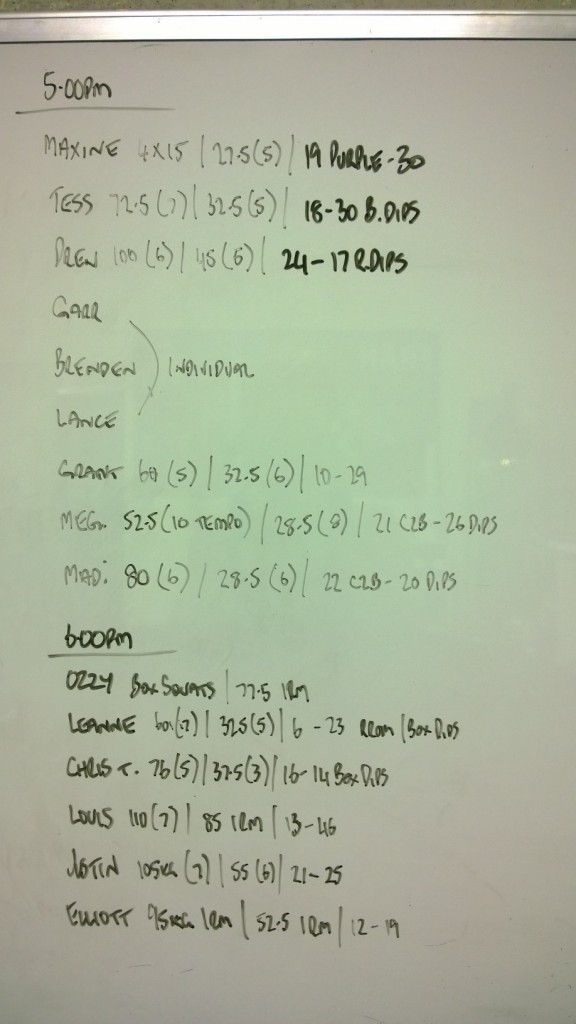 5.00PM
MAXINE 4X15 | 27.5(5) | 19 PURPLE-30
TESS 72.5(7) | 32.5(5) | 18-30 B.DIPS
DREN 100(6) | 45(6) | 24-17 R.DIPS
GARR
BRENDEN INDIVIDUAL
LANCE
GRANT 60(5) | 32.5(6) | 10-29
MEG. 52.5(10 TEMPO) | 28.5(8) | 21 C2B-26 DIPS
MADI 80(6) | 28.5(6) | 22 C2B-20 DIPS
6:00PM
OZZY BOX SQUATS | 77.5 1RM
LEANNE 60(7) | 32.5(5) | 6-23 RROM | BOX DIPS
CHRIS T. 76(5) | 37.5(3) | 16-14 BOX DIPS
LOUIS 110(7) | 85 1RM | 13-46
JUSTIN 105KG(7) | 55(6) | 21-25
ELLIOTT 95KG 1RM | 52.5 1RM | 12-19